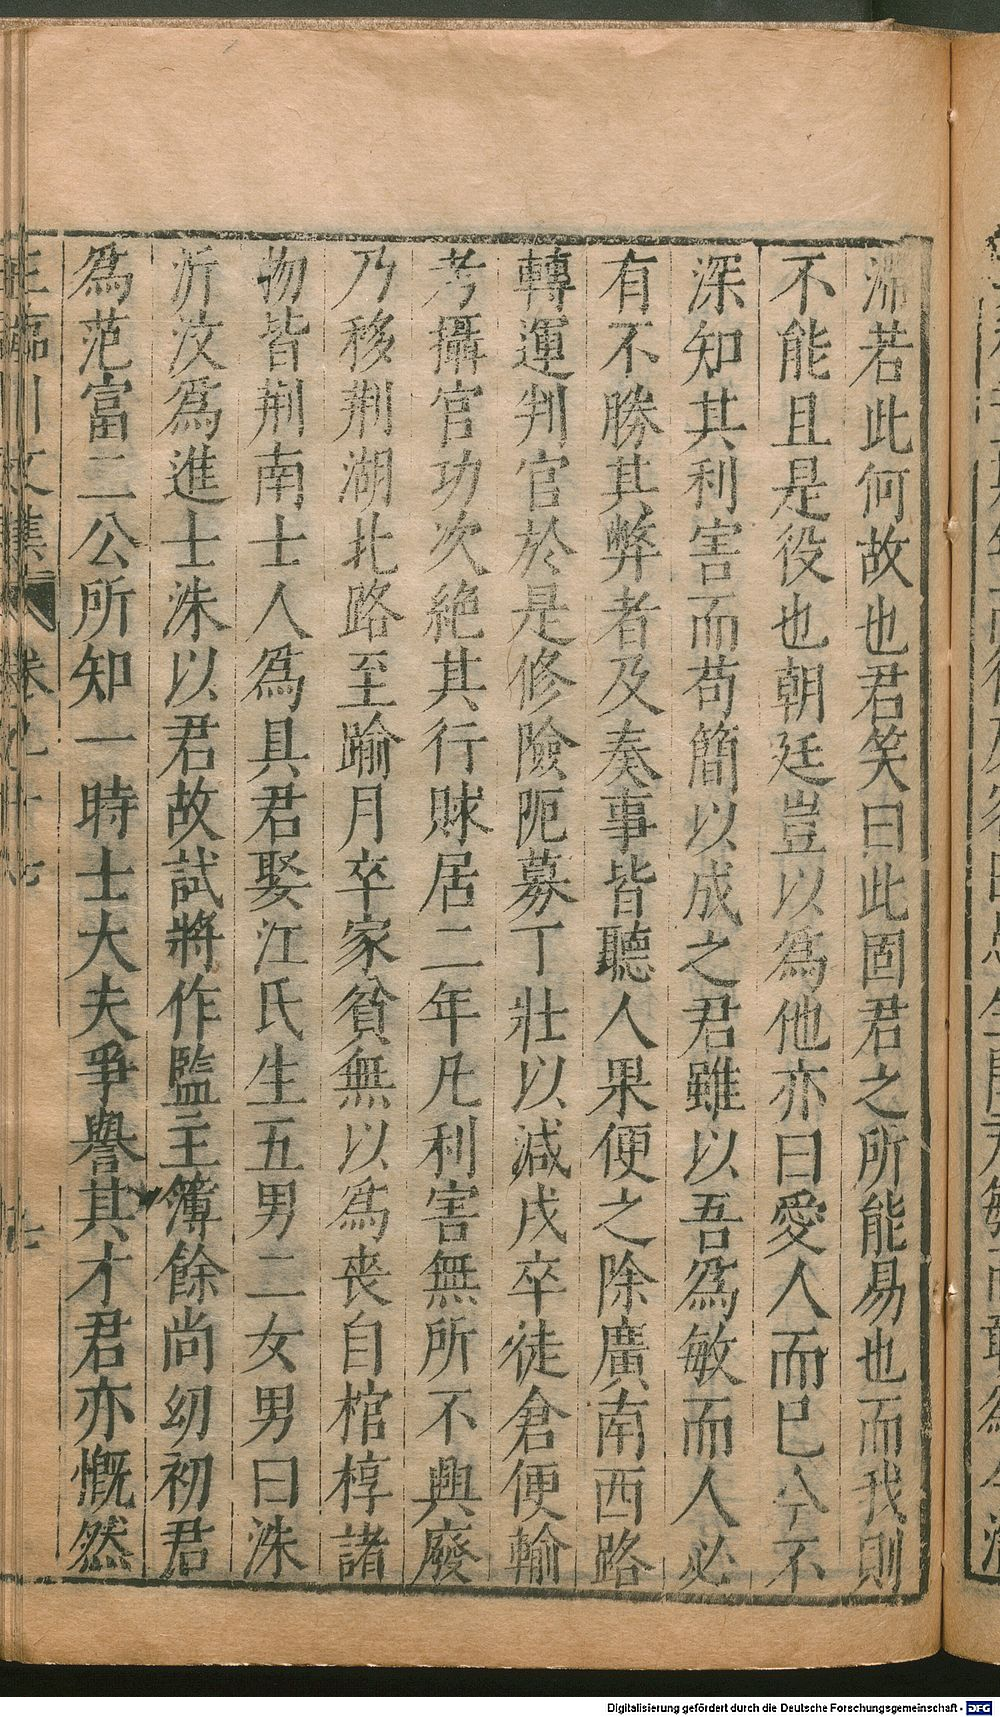 滯若此何故也君笑曰此固君之所能易也而我則
不能且是役也朝廷豈以爲他亦曰愛人而已今不
深知其利害而苟簡以成之君雖以吾爲敏而人必
有不勝其弊者及奏事皆聽人果便之除廣南西路
轉運判官於是修險阨募丁壯以減戍卒徒倉便輸
考攝官功次絶其行賕居二年凡利害無所不興廢
乃移荆湖北路至踰月卒家貧無以爲喪自棺椁諸
物皆荆南士人爲具君娶江氏生五男二女男曰洙
沂汶爲進士洙以君故試將作監主簿餘尚幼初君
爲范富二公所知一時士大夫爭譽其才君亦慨然
王臨川文集 卷九十七 七
Digitalisierung gefördert durch die Deutsche Forschungsgemeinschaft - DFG